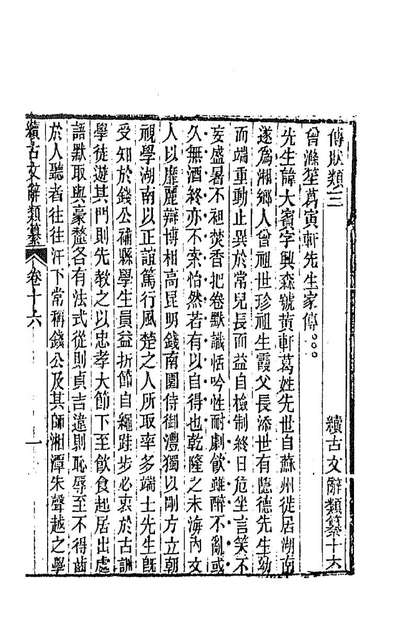 續古文辭類纂十六
傳狀類三
曾滌笙葛寅軒先生家傳
先生諱大賓字興森號黃軒葛姓先世自蘇州徙居湖南
遂為湘鄉人曾祖世珍祖生霞父長添世有隱德先生幼
而端重動止異於常兒長而益自檢制終日危坐言笑不
妄盛暑不袒焚香把卷默識恬吟性耐劇飲雖醉不亂或
久無酒終亦不索怡然若有以自得也乾隆之末海內文
人以靡麗辯博相高昆明錢南園侍御灃獨以剛方立朝
視學湖南以正誼篤行風楚之人所取率多端士先生既
受知於錢公補縣學生員益折節自繩跬步必衷於古訓
學徒遊其門則先教之以忠孝大節下至飲食起居出處
語默取與豪釐各有法式從則貞吉違則恥辱至不得齒
於人聽者往往汗下常稱錢公及其師湘潭朱聲越之學
續古文辭類纂
卷十六
一